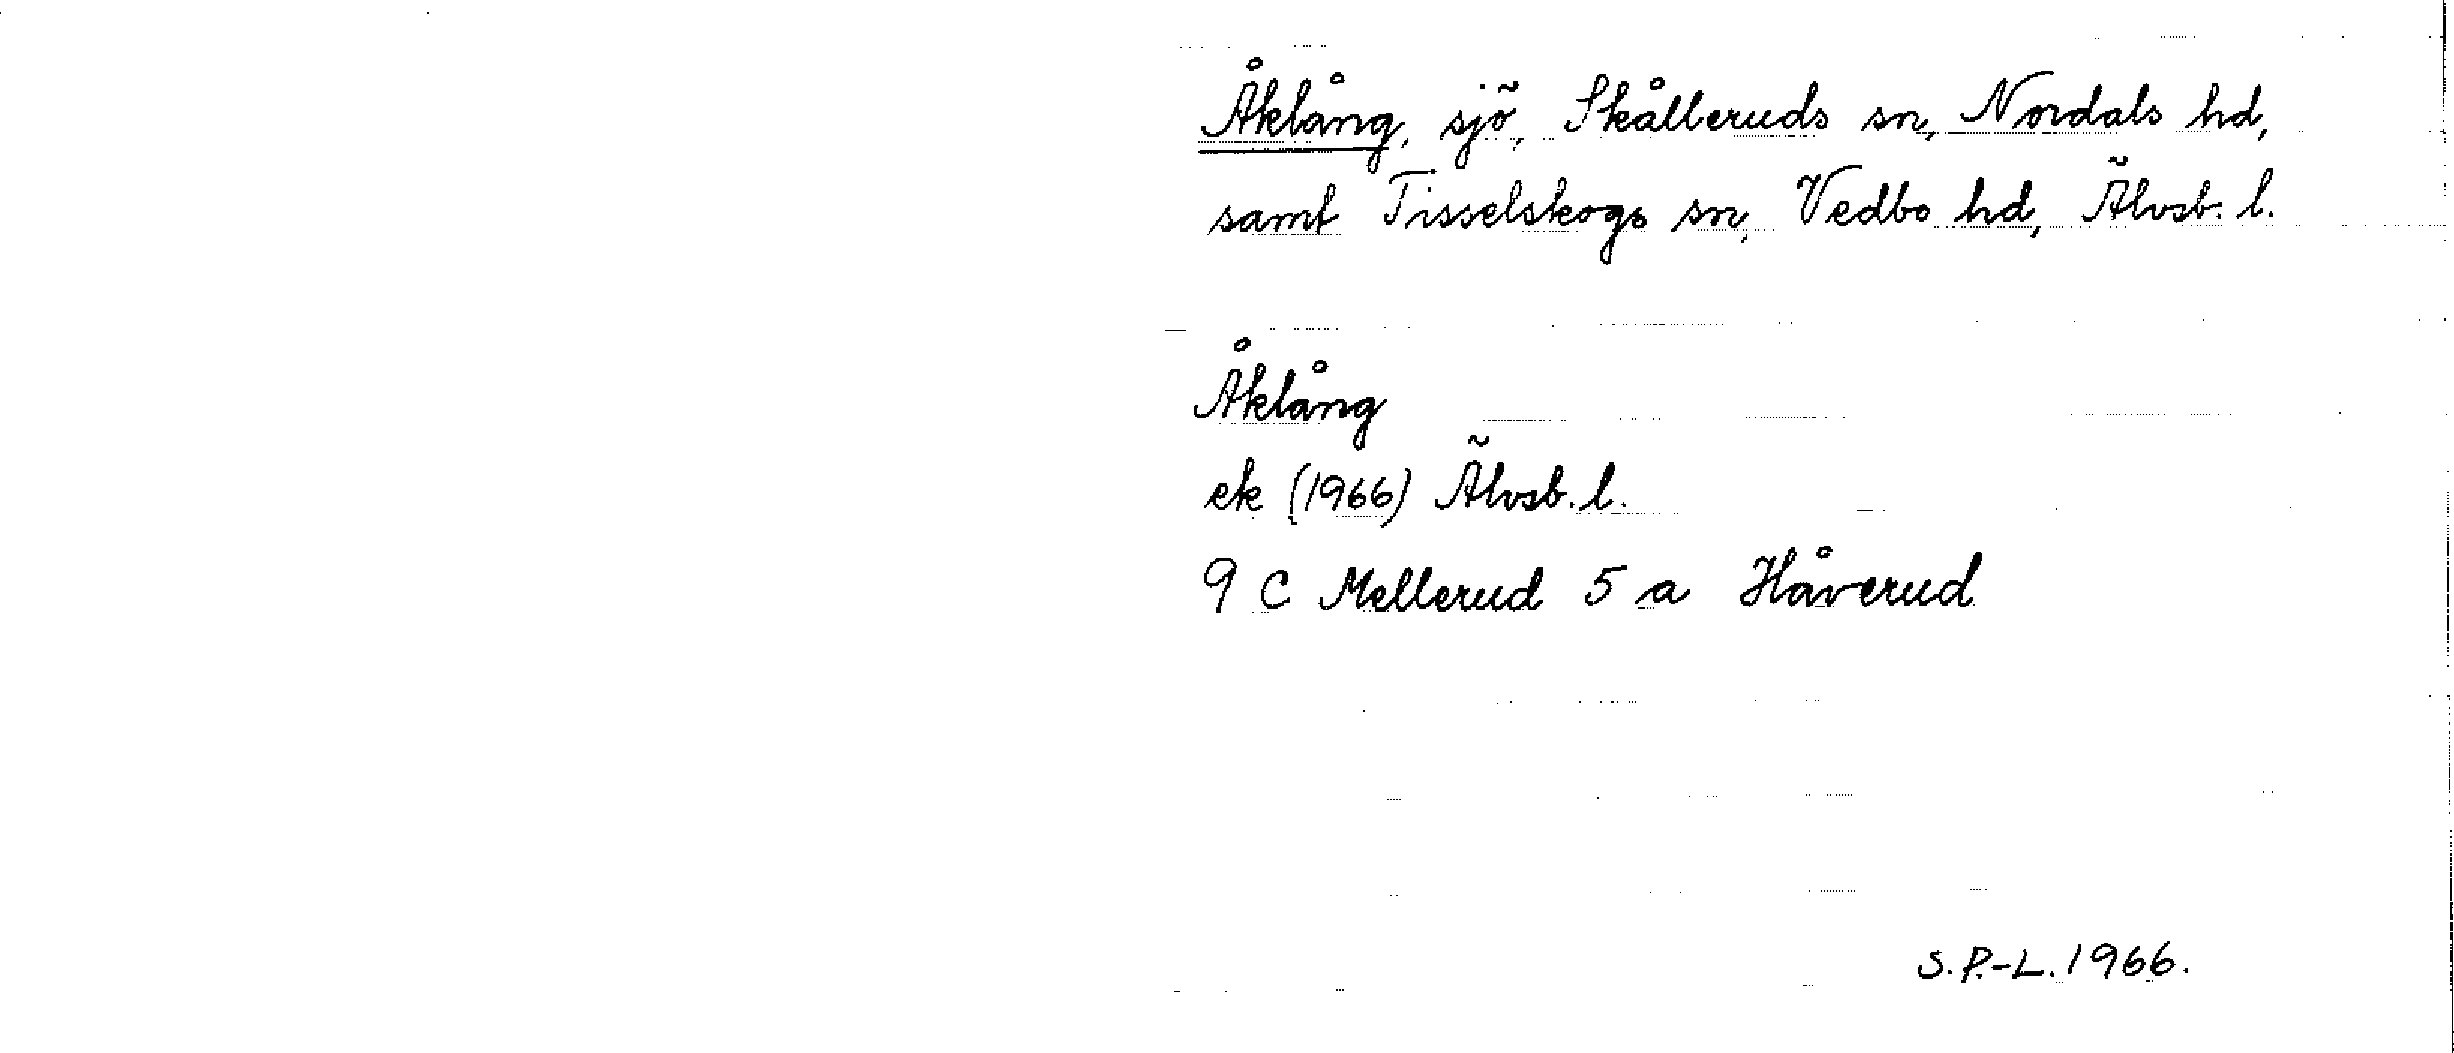 Åklång, sjö, Skålleruds sn, Nordals hd,
samt Tisselskogs sn, Vedbo hd, Älvsb. l.
Åklång
ek (1966) Älvsb. l.
9 C Mellerud 5 a Håverud
S.P.-L. 1966.